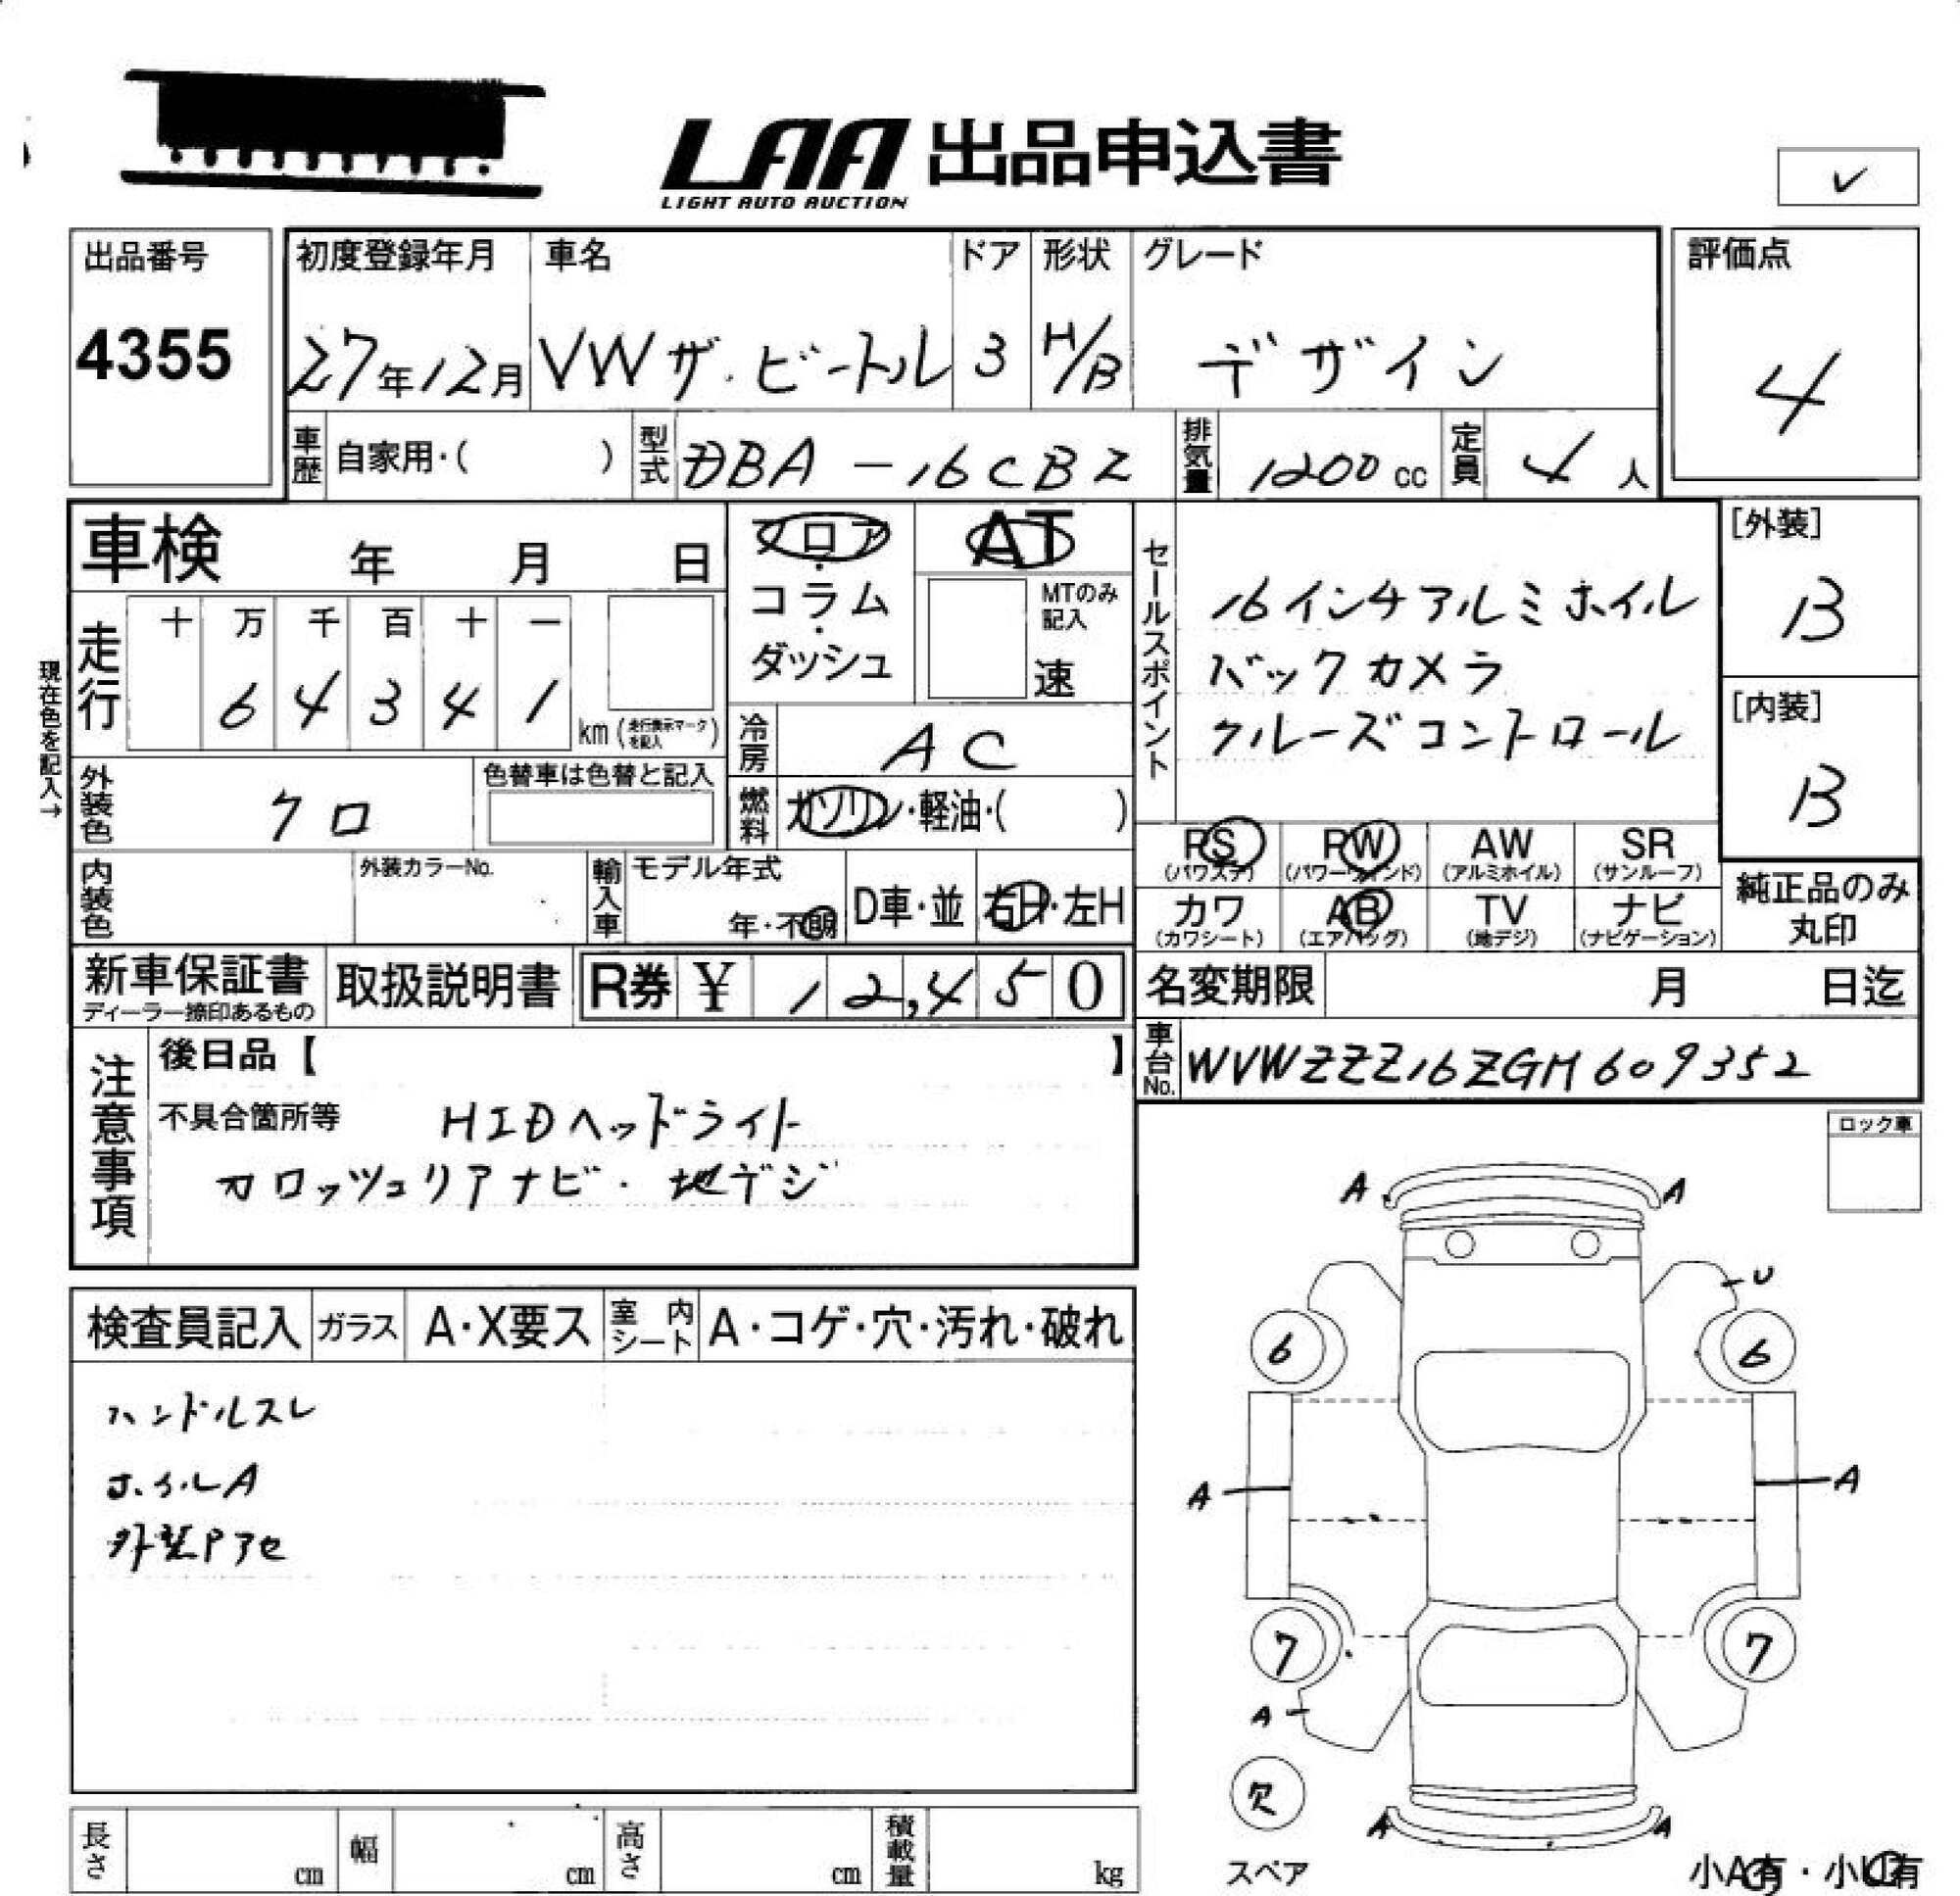 LAA 出品申込書
LIGHT AUTO AUCTION
✓
出品番号
4355
初度登録年月
27年12月
車名
VWザ・ビートル
ドア
3
形状
H/B
グレード
デザイン
評価点
4
車歴 自家用・( )
型式 DBA-16CBZ
排気量 1200 cc
定員 4 人
車検 年 月 日
フロア・コラム・ダッシュ
AT
MTのみ記入
速
セールスポイント
16インチアルミホイル
バックカメラ
クルーズコントロール
[外装]
B
[内装]
B
現在色を記入→
走行
十 万 千 百 十 一
6 4 3 4 1
km(走行表示マークを記入)
冷房 AC
燃料 ガソリン・軽油・( )
外装色 クロ
色替車は色替と記入
内装色
外装カラーNo.
輸入車
モデル年式
年・不明
D車・並
右H・左H
PS PW AW SR
(パワステ) (パワーウインド) (アルミホイル) (サンルーフ)
カワ AB TV ナビ
(カワシート) (エアバッグ) (地デジ) (ナビゲーション)
純正品のみ
丸印
新車保証書
ディーラー捺印あるもの
取扱説明書
R券 ¥ 12,450
名変期限 月 日迄
車台No. WVWZZZ16ZGM609352
注意事項
後日品【 】
不具合箇所等 HIDヘッドライト
カロッツェリアナビ・地デジ
ロック車
検査員記入
ガラス A・X要ス
室内シート A・コゲ・穴・汚れ・破れ
ハンドルスレ
ホイルA
外装Pアセ
A A
U
6 6
A A
7 7
A
欠
スペア
A A
小A有・小U有
長さ cm
幅 cm
高さ cm
積載量 kg